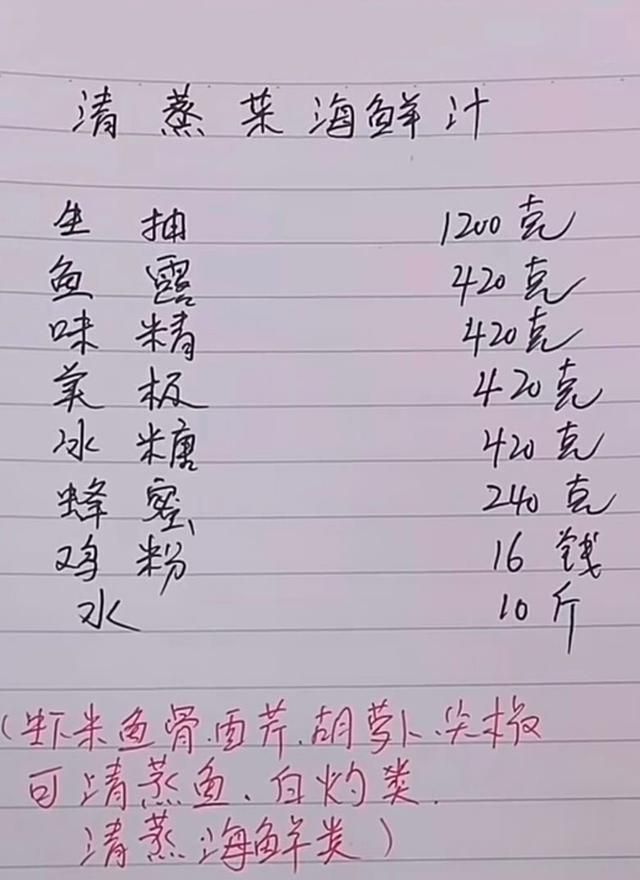 清蒸菜海鲜汁
生抽 1200克
鱼露 420克
味精 420克
美极 420克
冰糖 420克
蜂蜜 240克
鸡粉 16钱
水 10斤
(虾米鱼骨.西芹.胡萝卜.尖椒
可清蒸鱼、白灼类.
清蒸海鲜类)